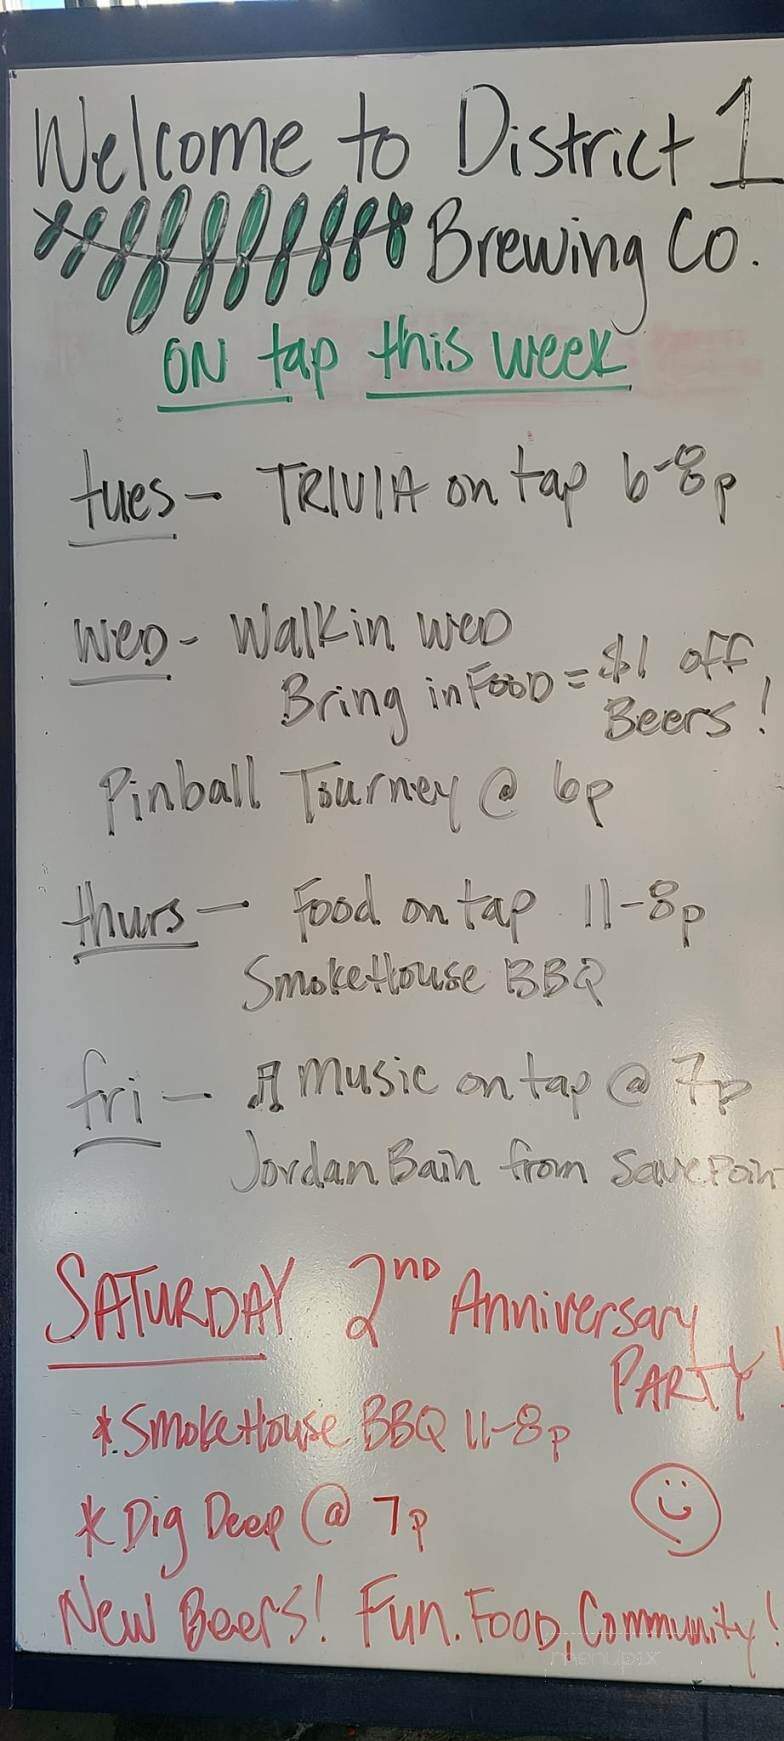 Welcome to District 1
Brewing Co.
ON tap this week
tues - TRIVIA on tap 6-8p
WED - Walkin WED
Bring in FOOD = $1 off
Beers!
Pinball Tourney @ 6p
thurs - Food on tap 11-8p
SmokeHouse BBQ
fri - ♫ music on tap @ 7p
Jordan Bain from SavePoin
SATURDAY 2ND Anniversary
PARTY!
* SmokeHouse BBQ 11-8p
* Dig Deep @ 7p
New Beers! Fun. FOOD, Community!
menupix